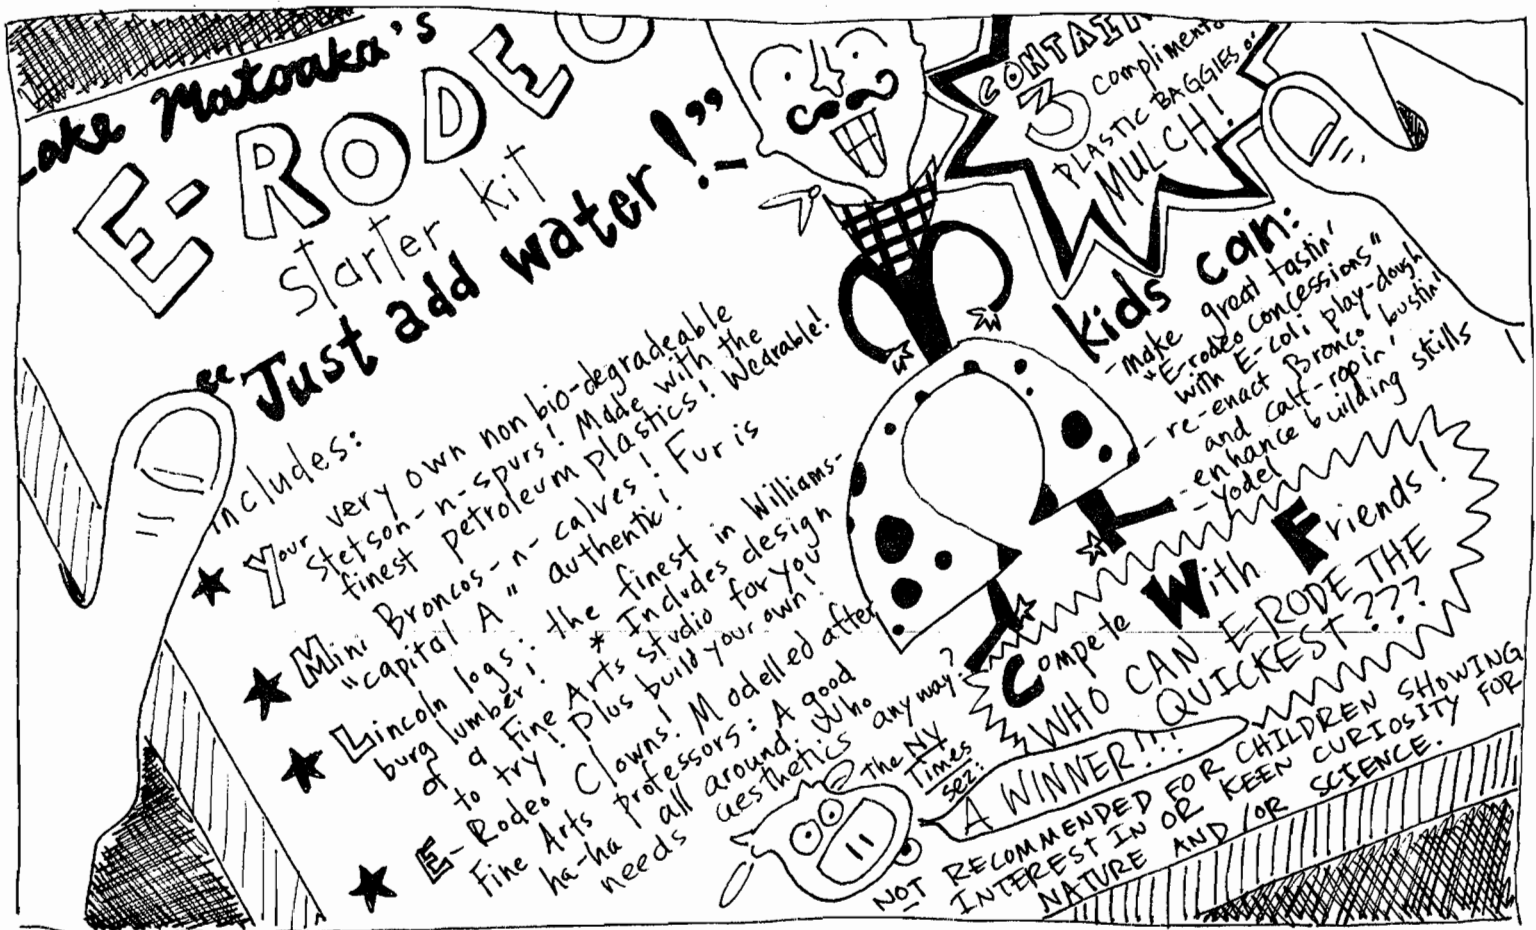 Lake Matoaka's
E-RODEO
starter kit
"Just add water!"-
includes:
★ Your very own non bio-degradeable
stetson-n-spurs! Made with the
finest petroleum plastics! Wearable!
★ Mini Broncos-n-calves! Fur is
"capital A" authentic!
★ Lincoln logs: the finest in Williams-
burg lumber! * Includes design
of a Fine Arts studio for you
to try! Plus build your own!
★ E-Rodeo Clowns! Modelled after
Fine Arts professors: A good
ha-ha all around. Who
needs aesthetics anyway?
CONTAIN
3 complimenta
PLASTIC BAGGIES o'
MULCH!
kids can:
-make great tastin'
"E-rodeo concessions"
with E-coli play-dough
- re-enact Bronco bustin'
and calf-ropin'
-enhance building skills
- Yodel
Compete With Friends!
WHO CAN E-RODE THE
QUICKEST ???
the NY
Times
sez:
A WINNER!!!
NOT RECOMMENDED FOR CHILDREN SHOWING
INTEREST IN OR KEEN CURIOSITY FOR
NATURE AND/OR SCIENCE.